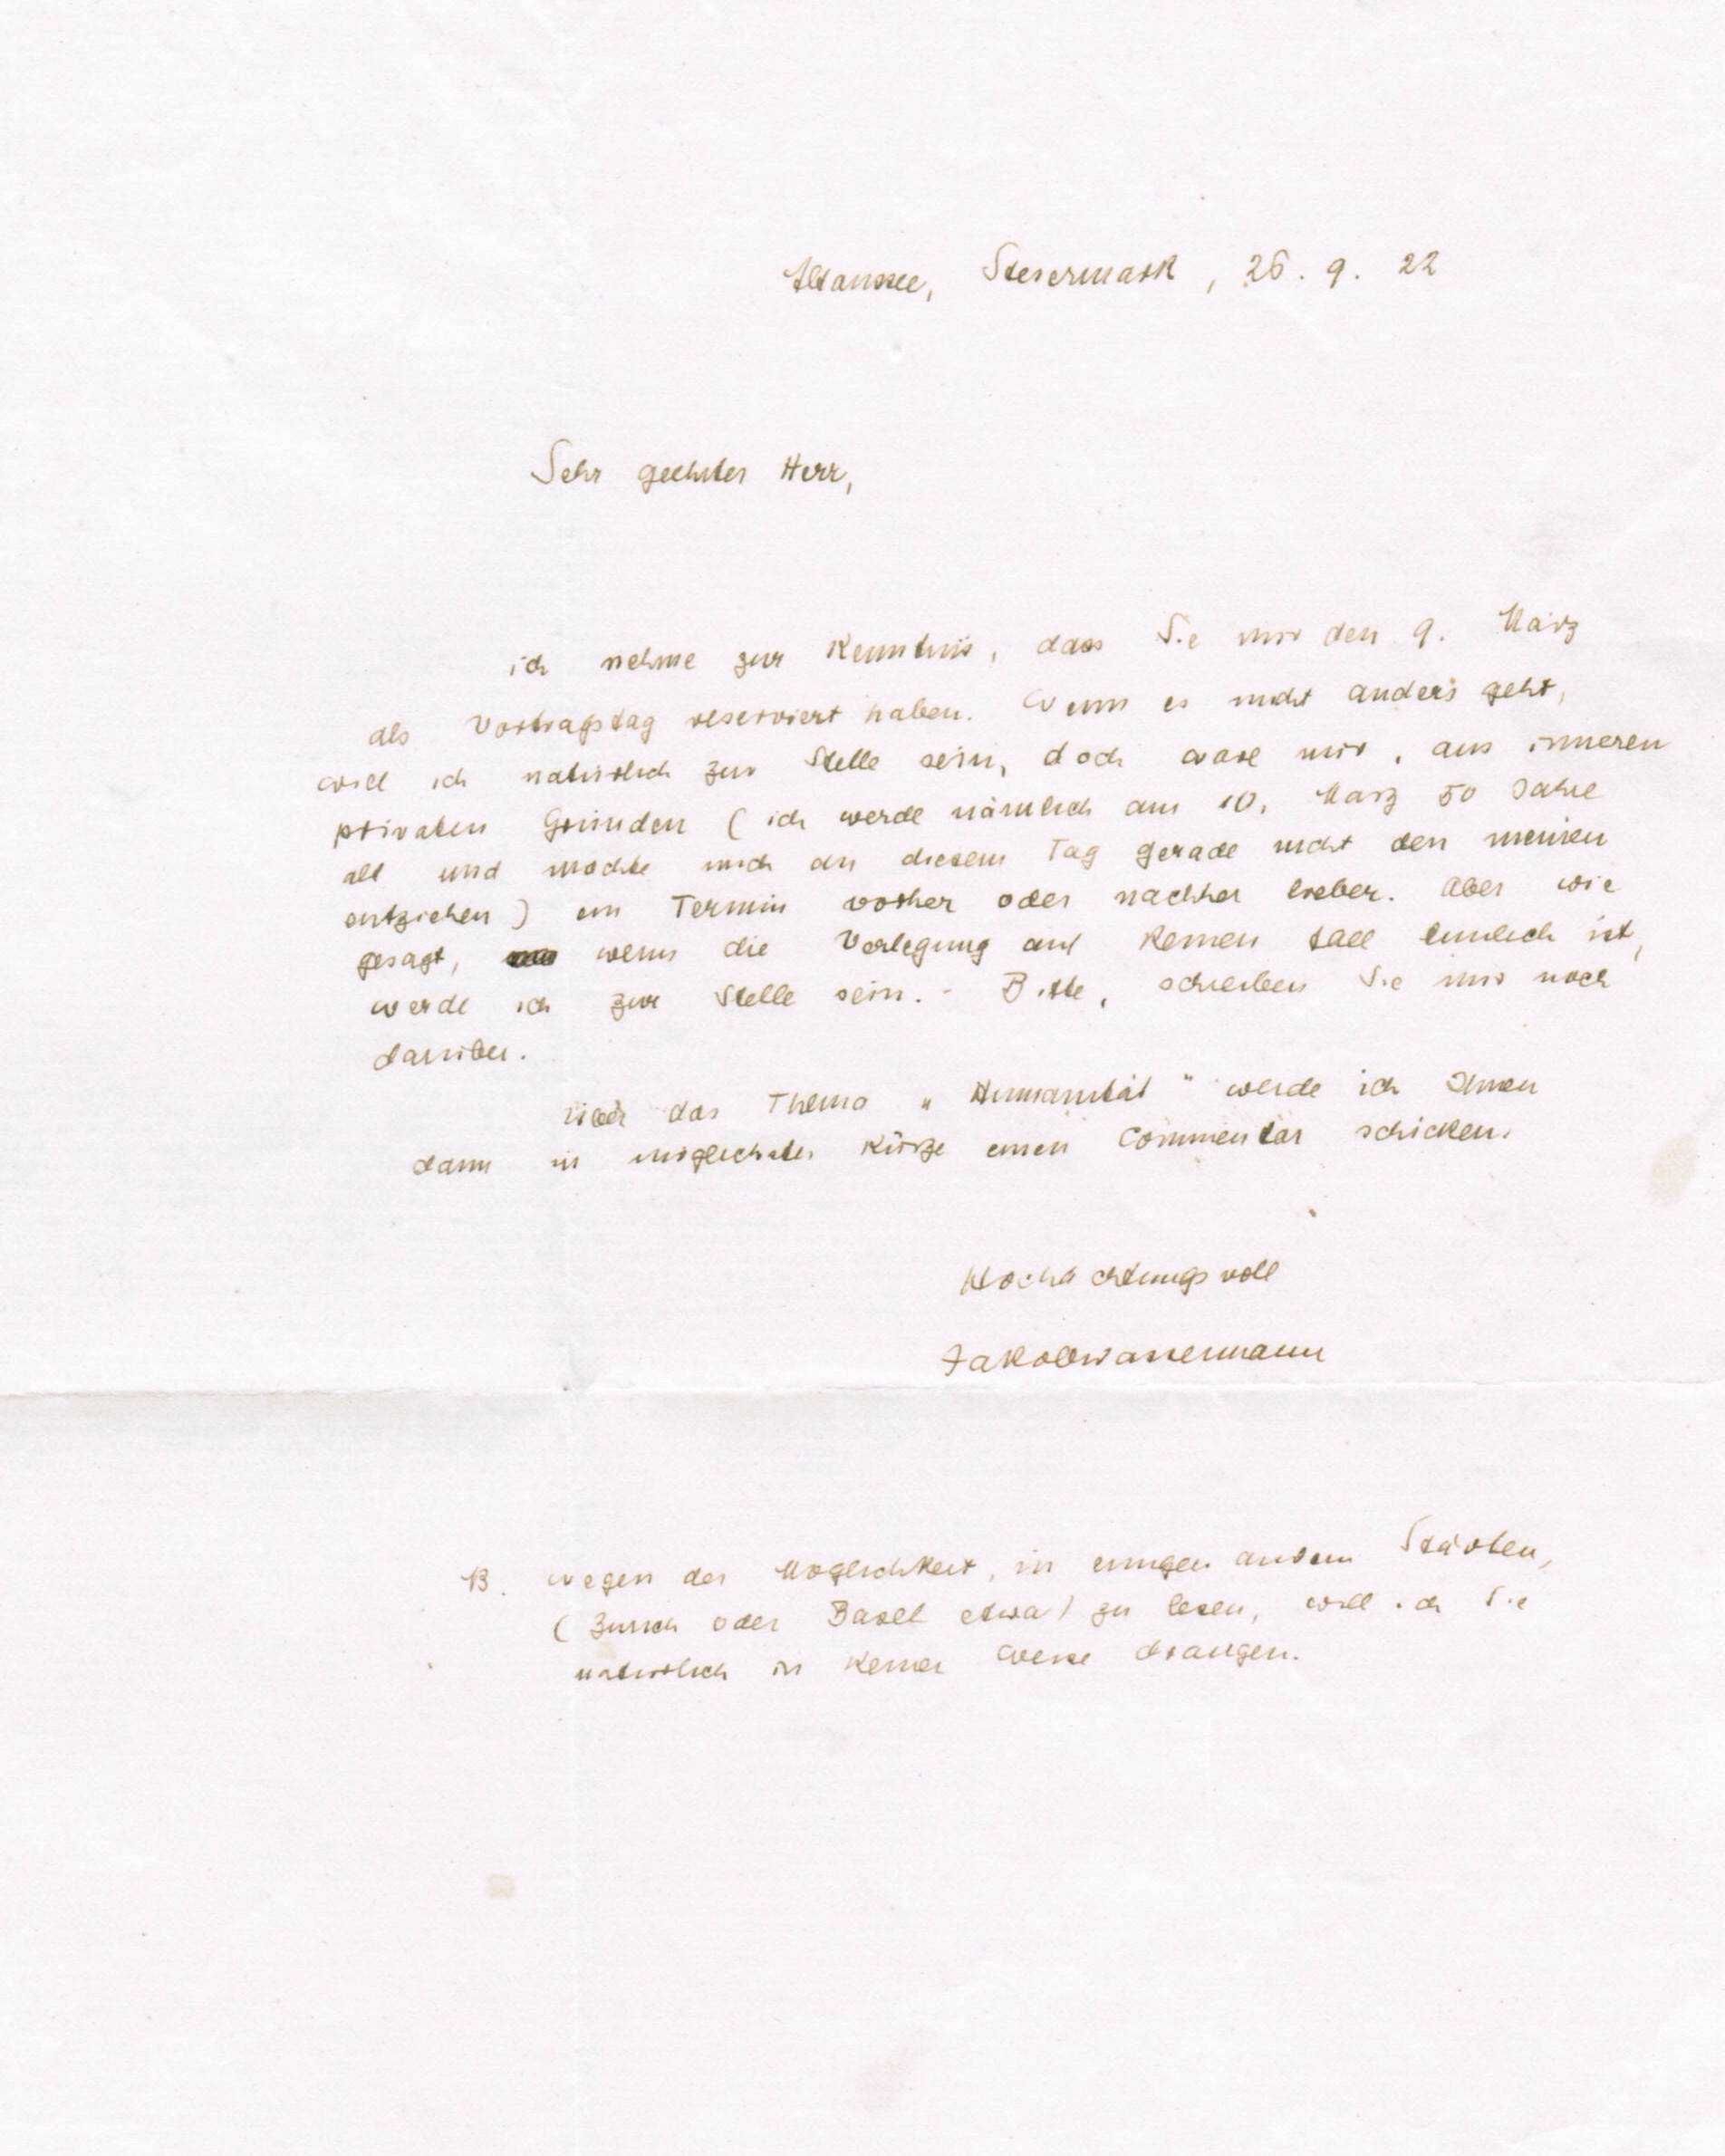 Altaussee, Steiermark, 26. 9. 22
Sehr geehrter Herr,
ich nehme zur Kenntnis, dass Sie mir den 9. März
als Vortragstag reserviert haben. Wenn es nicht anders geht,
will ich natürlich zur Stelle sein, doch wäre mir, aus inneren
privaten Gründen (ich werde nämlich am 10. März 50 Jahre
alt und möchte mich an diesem Tag gerade nicht den meinen
entziehen) ein Termin vorher oder nachher lieber. Aber wie
gesagt, wenn die Verlegung auf keinen Fall tunlich ist,
werde ich zur Stelle sein. - Bitte, schreiben Sie mir noch
darüber.
Über das Thema „Humanität" werde ich Ihnen
dann in möglichster Kürze einen Commentar schicken.
Hochachtungsvoll
Jakob Wassermann
Wegen der Möglichkeit, in einigen andern Städten,
(Zürich oder Basel etwa) zu lesen, will ich Sie
natürlich in keiner Weise drängen.